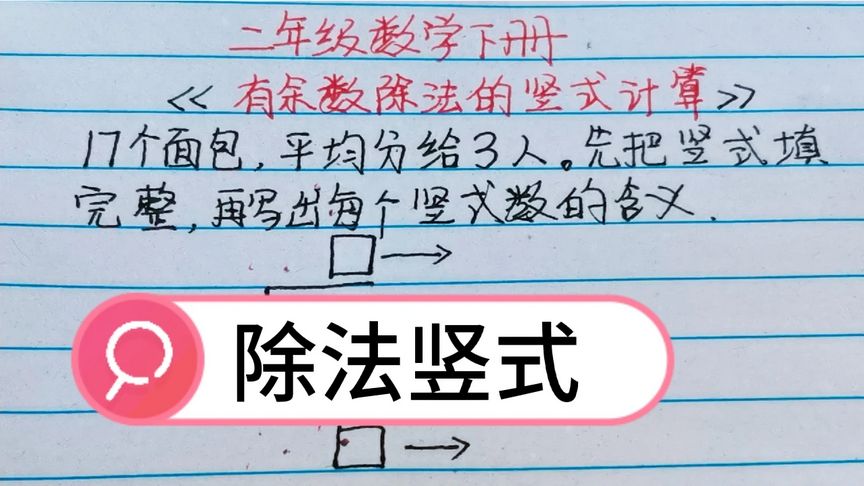 二年级数学下册
<<有余数除法的竖式计算>>
17个面包，平均分给3人。先把竖式填
完整，再写出每个竖式数的含义.
除法竖式